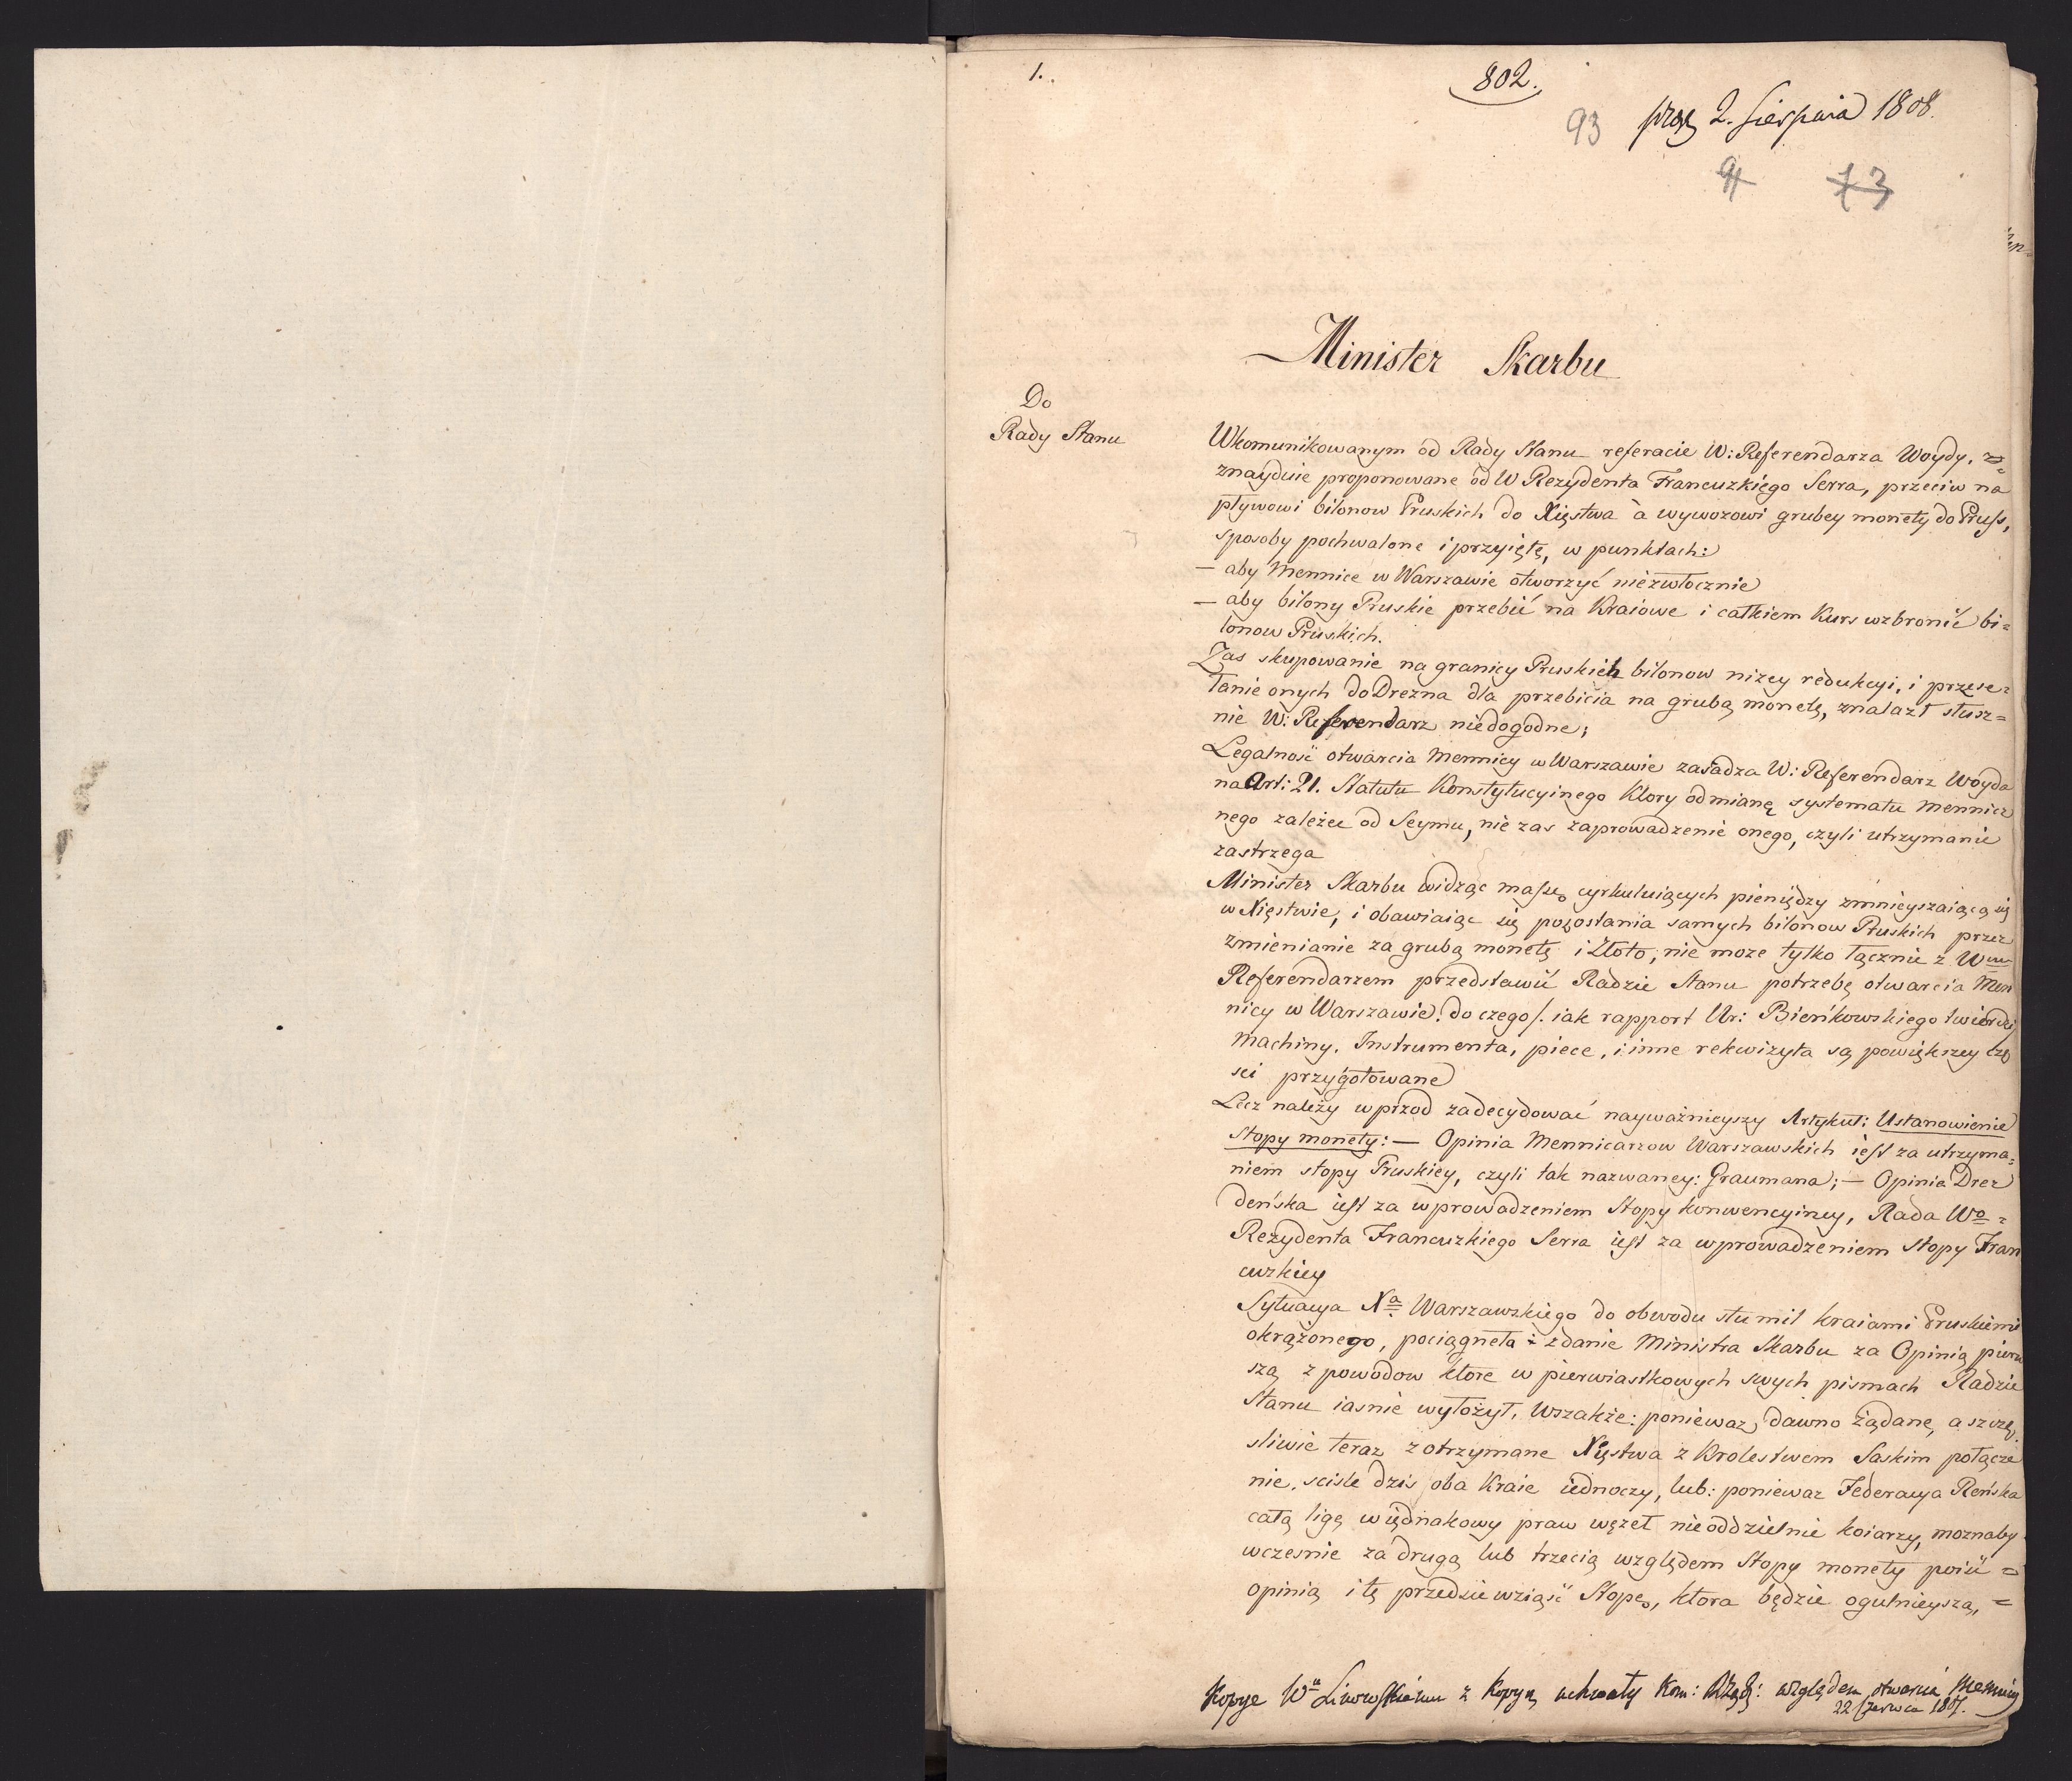 1.
802.
93 2. Sierpnia 1808.
Minister Skarbu
Do
Rady Stanu
Wkomunikowanym od Rady Stanu referacie W: Referendarza Woydy,
znayduie proponowane od W Rezydenta Francuzkiego Serra, przeciw na
pływowi bilonow Pruskich do Xięstwa à wywozowi grubey monety do Pruss,
sposoby pochwalone i przyięte, w punktach:
— aby Mennice w Warszawie otworzyć niezwłocznie
— aby bilony Pruskie przebić na Kraiowe i całkiem Kurs wzbronić bi=
lonow Pruskich.
Zas skupowanie na granicy Pruskich bilonow nizey redukcyi, i przese=
łanie onych do Drezna dla przebicia na grubą monetę, znalazł słusz=
nie W: Referendarz niedogodne;
Legalność otwarcia Mennicy w Warszawie zasadza W: Referendarz Woyda
na Art: 21. Statutu Konstytucyinego Ktory odmianę systematu Mennicz
nego zależeć od Seymu, nie zas zaprowadzenie onego, czyli utrzymanie
zastrzega
Minister Skarbu widząc massę cyrkuluiących pieniędzy zmnieyszaiącą się
w Xięstwie, i obawiaiąc się pozostania samych bilonow Pruskich przez
zmienianie za grubą monetę i Złoto, nie moze tylko łącznie z Wm
Referendarzem przedstawić Radzie Stanu potrzebę otwarcia Men
nicy w Warszawie. do czego /. iak rapport Ur: Bieńkowskiego twierdzi
Machiny, Instrumenta, piece, i inne rekwizyta są powiększey czę
sci przygotowane
Lecz należy wprzod zadecydować nayważnieyszy Artykuł: Ustanowienie
Stopy monety: — Opinia Mennicarzow Warszawskich iest za utrzyma=
niem stopy Pruskiey, czyli tak nazwaney: Graumana; — Opinia Drez
deńska iest za wprowadzeniem Stopy konwencyiney, Rada Wo =
Rezydenta Francuzkiego Serra iest za wprowadzeniem stopy Fran
cuzkiey
Sytuacya Xa Warszawskiego do obwodu stu mil kraiami Pruskiemi
okrążonego, pociągneła i zdanie Ministra Skarbu za Opinią pierw
szą z powodow ktore w pierwiastkowych swych pismach Radzie
Stanu iasnie wyłożył, Wszakże: ponieważ dawno żądane, a szczę
sliwie teraz zotrzymane Xięstwa z Krolestwem Saskim połącze
nie, scisle dzis oba Kraie iednoczy, lub: poniewaz Federacya Reńska
całą ligę w iednakowy praw węzeł nieoddzielnie koiarzy, moznaby
wczesnie za drugą lub trzecią względem Stopy monety poiść =
opinią i tę przedsiewziąść Stopę, ktora będzie ogulnieyszą, =
Kopye Wu Linowskiemu z kopyą uchwały Kom: Rządz: względem otwarcia Mennicy
22 Czerwca 1807.